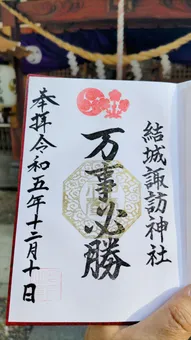 結城諏訪神社
万事必勝
奉拝令和五年十二月十日